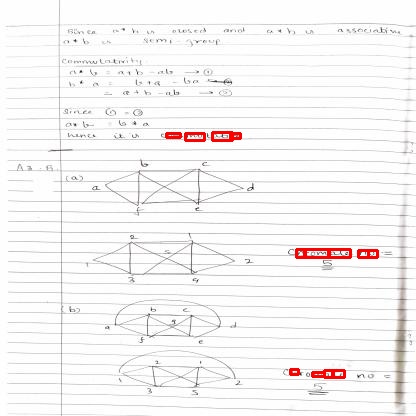 Since a*b is closed and a*b is associative
a*b is semi-group
Commutativity
a*b = a+b-ab → ①
b*a = b+a - ba
= a+b-ab → ②
Since ① = ②
a*b = b*a
hence it is
A3. B.
(a)
b c
a d
f e
2 1
5
1 2
3 4
no =
5
(b)
b c
a g d
f e
2 1
1 2
3 5
no =
5